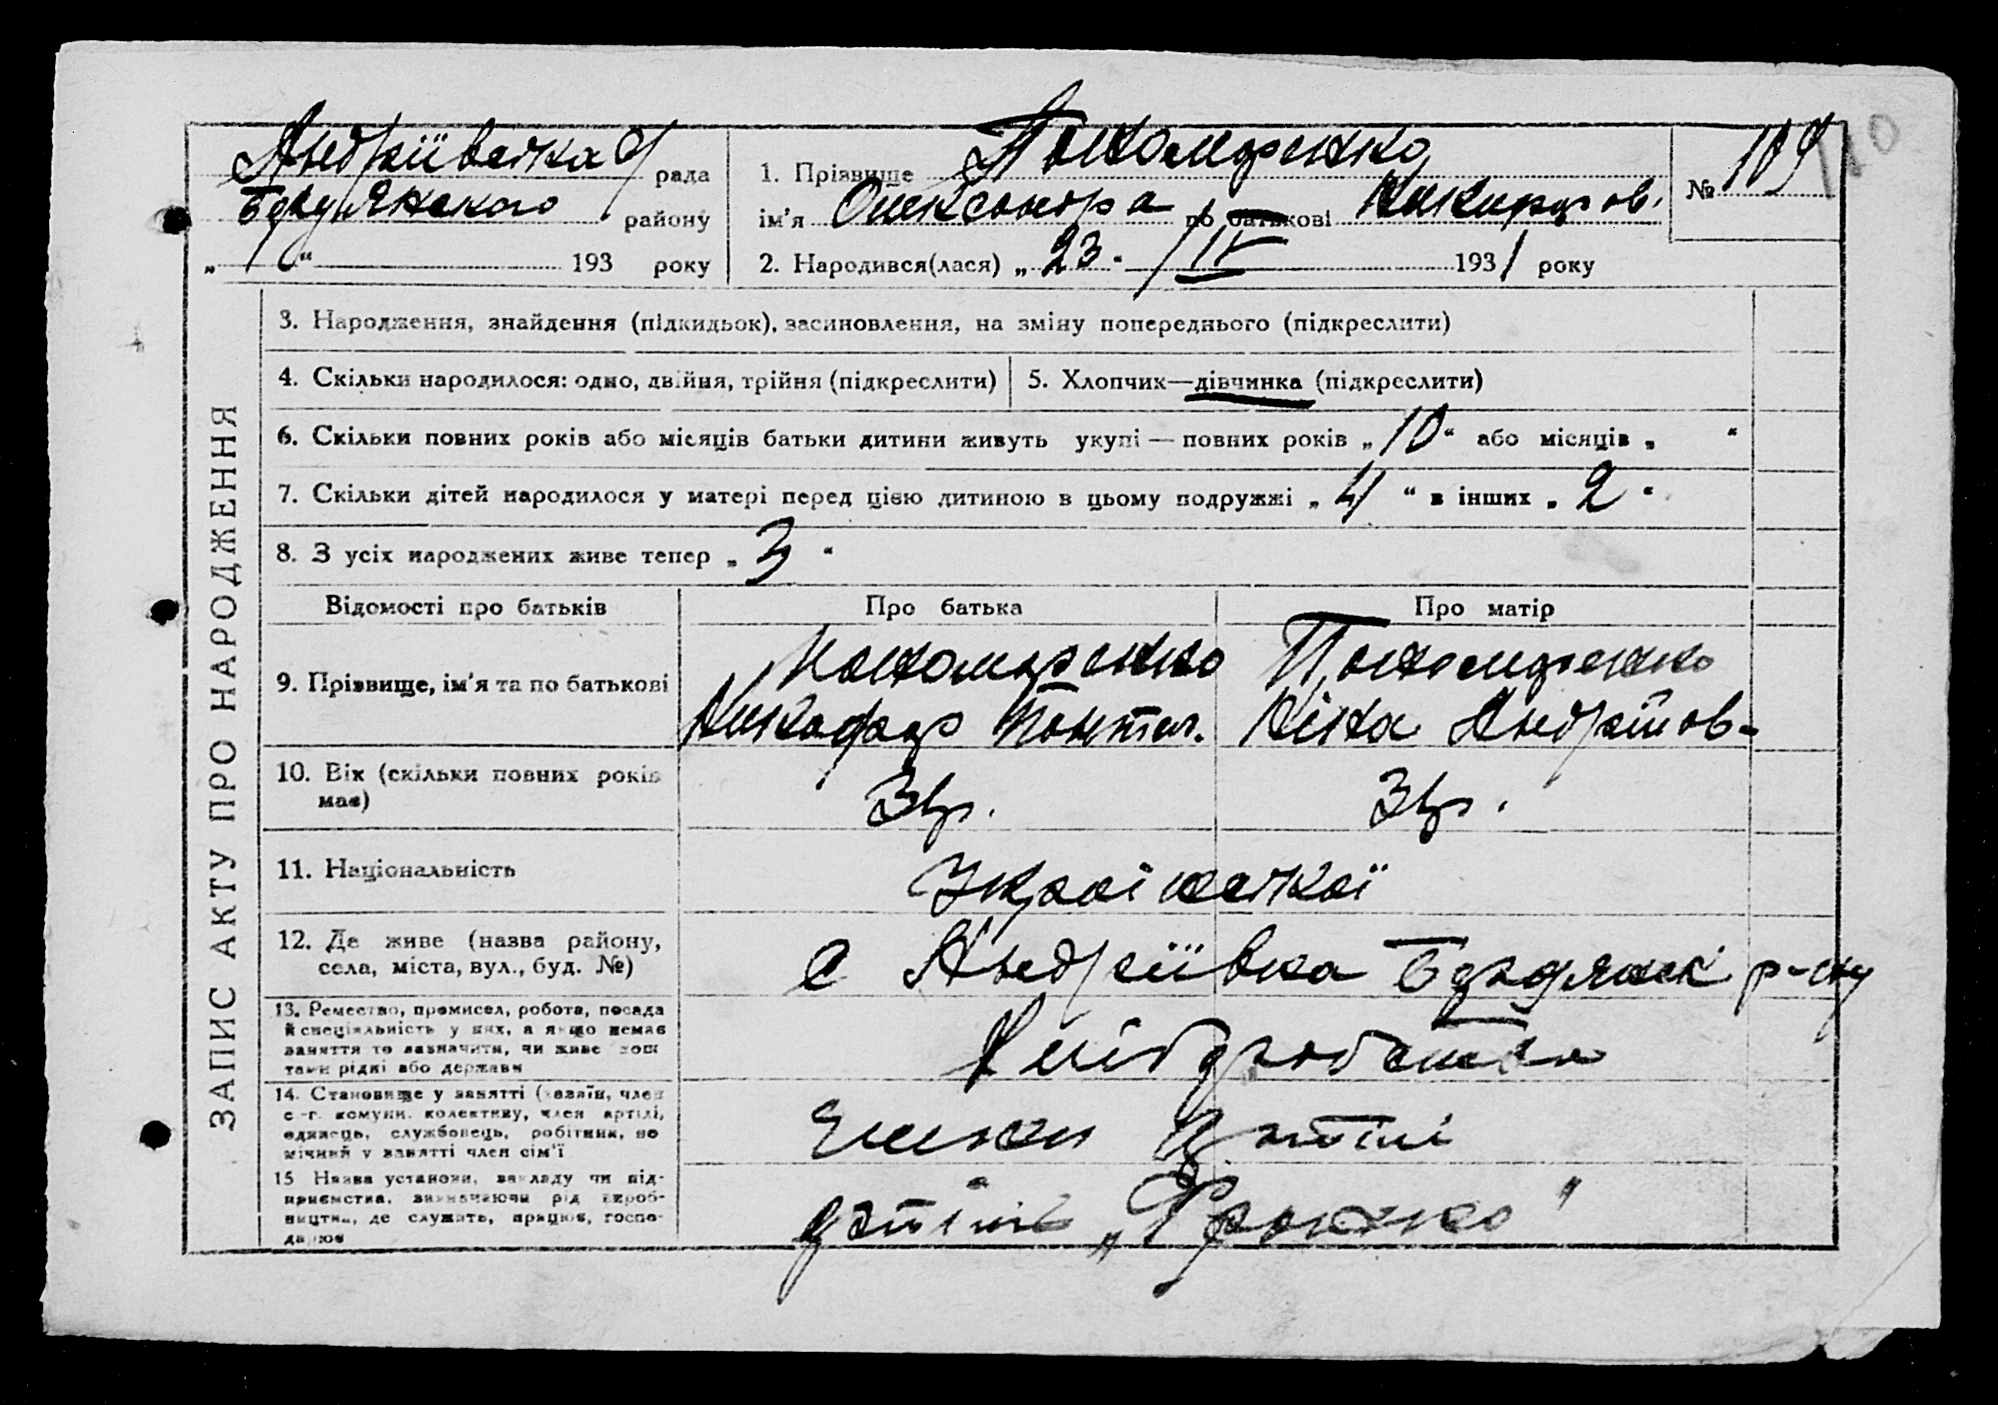 Андріївська с/ рада
Бердянського району
„ “ 193 року
1. Прізвище Пономаренко
ім'я Олександра по батькові Никифоров.
№ 109
110
2. Народився(лася) „23. / IV 1931 року
ЗАПИС АКТУ ПРО НАРОДЖЕННЯ
3. Народження, знайдення (підкидьок), засиновлення, на зміну попереднього (підкреслити)
4. Скільки народилося: одно, двійня, трійня (підкреслити)
5. Хлопчик—дівчинка (підкреслити)
6. Скільки повних років або місяців батьки дитини живуть укупі — повних років „10“ або місяців „ “
7. Скільки дітей народилося у матері перед цією дитиною в цьому подружжі „4“ в інших „2“
8. З усіх народжених живе тепер „3“
Відомості про батьків
Про батька
Про матір
9. Прізвище, ім'я та по батькові
Пономаренко
Никифор Понтел.
Пономаренко
Ніна Андріїов-
10. Вік (скільки повних років
має)
31р.
31р.
11. Національність
Української
12. Де живе (назва району,
села, міста, вул., буд. №)
с Андріївка Бердянськ р-ну
13. Ремество, промисел, робота, посада
й спеціяльність у них, а якщо немає
заняття то зазначити, чи живе кош
тами рідні або держави
Хліборобство
14. Становище у занятті (хазяїн, член
с.-г. комуни, колективу, член артілі,
одинець, службовець, робітник, по
мічний у занятті член сім'ї
Члени артілі
15 Назва установи, закладу чи під-
приємства, визначаючи рід вироб-
ництва, де служить, працює, госпо-
дарює
артіль „Франко“